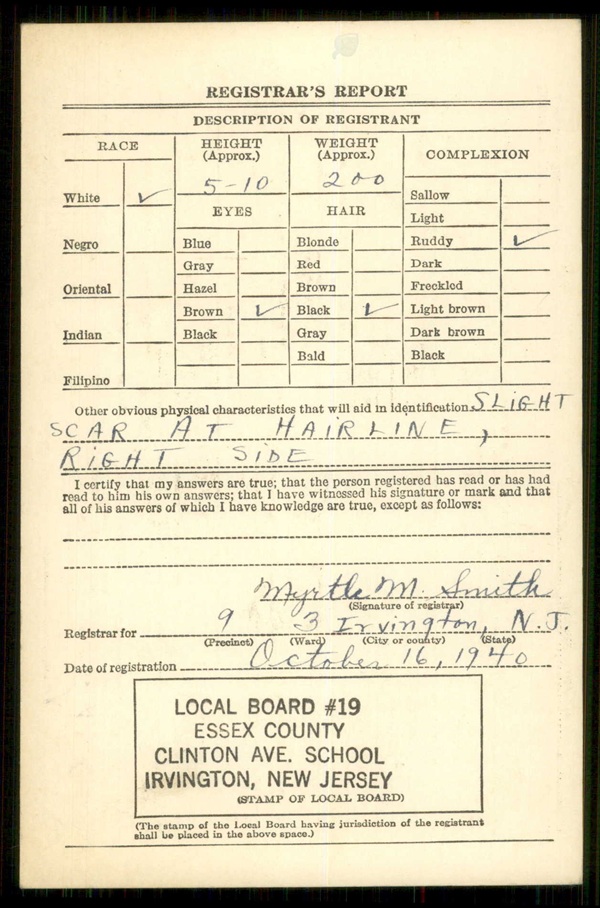 REGISTRAR'S REPORT
DESCRIPTION OF REGISTRANT
RACE
HEIGHT (Approx.)
WEIGHT (Approx.)
COMPLEXION
White ✓
5-10
200
Sallow
EYES
HAIR
Light
Negro
Blue
Blonde
Ruddy ✓
Gray
Red
Dark
Oriental
Hazel
Brown
Freckled
Brown ✓
Black ✓
Light brown
Indian
Black
Gray
Dark brown
Bald
Black
Filipino
Other obvious physical characteristics that will aid in identification SLIGHT
SCAR AT HAIRLINE,
RIGHT SIDE
I certify that my answers are true; that the person registered has read or has had
read to him his own answers; that I have witnessed his signature or mark and that
all of his answers of which I have knowledge are true, except as follows:
Myrtle M. Smith
(Signature of registrar)
Registrar for 9 3 Irvington, N.J.
(Precinct) (Ward) (City or county) (State)
Date of registration October 16, 1940
LOCAL BOARD #19
ESSEX COUNTY
CLINTON AVE. SCHOOL
IRVINGTON, NEW JERSEY
(STAMP OF LOCAL BOARD)
(The stamp of the Local Board having jurisdiction of the registrant
shall be placed in the above space.)